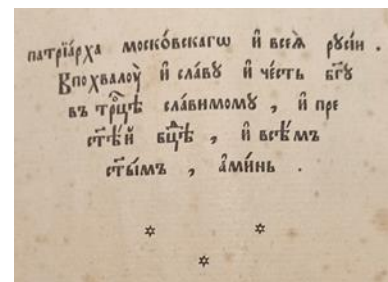 патрїа́рха моско́вскагѡ и҆ всеѧ̀ рꙋсі́и .
Въпохвалоу̀ и҆ сла́вꙋ и҆ че́сть бг҃ꙋ
въ трⷪ҇цѣ сла́вимомꙋ , и҆ пре
ст҃ѣ́й бцⷣѣ , и҆ всѣ́мъ
ст҃ы́мъ , а҆ми́нь .